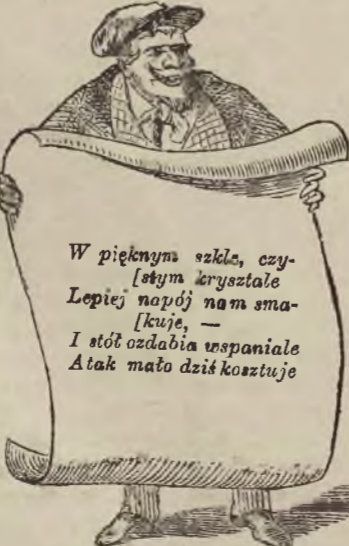 W pięknym szkle, czy-
[stym kryształe
Lepiej napój nam sma-
[kuje, —
I stół ozdabia wspaniale
A tak mało dziś kosztuje